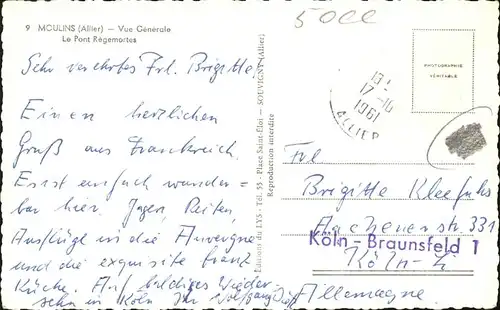 9 MOULINS (Allier) — Vue Générale
Le Pont Régemortes
5000
Sehr verehrtes Frl. Brigitte,
Einen herzlichen
Gruß aus Frankreich.
Es ist einfach wunder=
bar hier. Jagen, Reiten,
Ausflüge in die Auvergne
und die exquisite franz.
Küche. Auf baldiges Wieder
sehn in Köln Ihr Wolfgang
Editions du LYS - Tél. 55 - Place Saint-Eloi — SOUVIGNY (Allier)
Reproduction interdite
PHOTOGRAPHIE
VÉRITABLE
17-10
1961
ALLIER
Frl
Brigitte Kleefuhs
Aachenerstr. 331
Köln-Braunsfeld 1
Köln-
Allemagne.